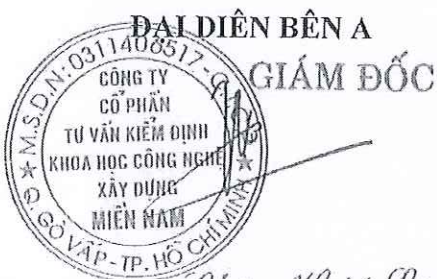 ĐẠI DIÊN BÊN A
GIÁM ĐỐC
M.S.D.N: 0311408517-C.
CÔNG TY
CỔ PHẦN
TƯ VẤN KIỂM ĐỊNH
KHOA HỌC CÔNG NGHỆ
XÂY DỰNG
MIỀN NAM
Q. GÒ VẤP - TP. HỒ CHÍ MINH